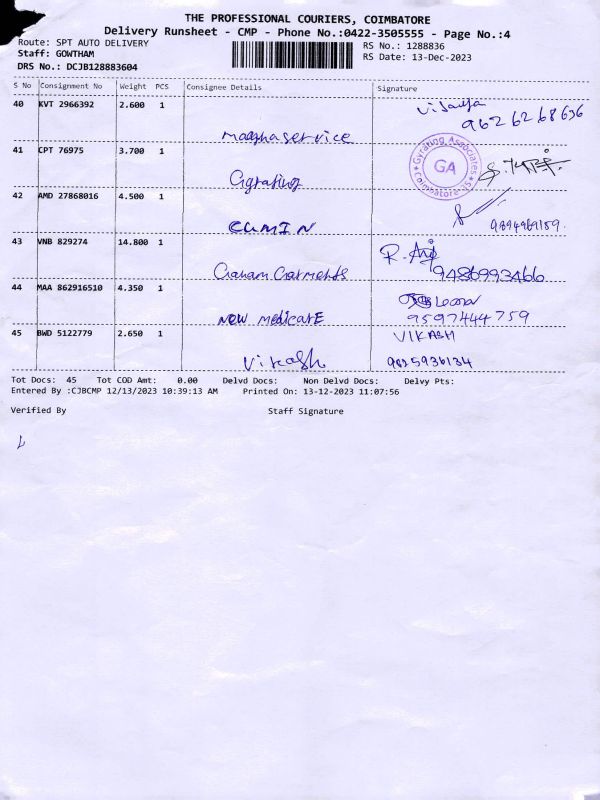 THE PROFESSIONAL COURIERS, COIMBATORE
Delivery Runsheet - CMP - Phone No.:0422-3505555 - Page No.:4
Route: SPT AUTO DELIVERY
RS No.: 1288836
Staff: GOWTHAM
RS Date: 13-Dec-2023
DRS No.: DCJB128883604
S No Consignment No Weight PCS Consignee Details Signature
40 KVT 2966392 2.600 1
9626268636
service
41 CPT 76975 3.700 1
Gyrating Associates
GA
Coimbatore-35
42 AMD 27868016 4.500 1
CUMIN
43 VNB 829274 14.800 1
Garments
9486993466
44 MAA 862916510 4.350 1
NEW MEDICARE
9597444759
45 BWD 5122779 2.650 1
VIKASH
Vikash
Tot Docs: 45 Tot COD Amt: 0.00 Delvd Docs: Non Delvd Docs: Delvy Pts:
Entered By :CJBCMP 12/13/2023 10:39:13 AM Printed On: 13-12-2023 11:07:56
Verified By Staff Signature